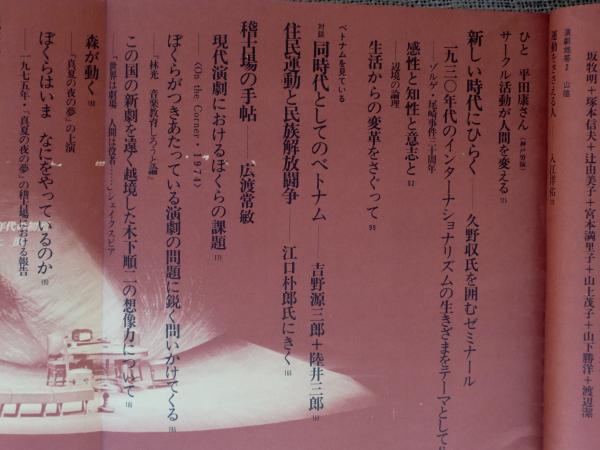 坂牧明+塚本信夫+辻由美子+宮本満里子+山上茂子+山下勝洋+渡辺潔
演劇雑感2 山誼
運動をささえる人――入江洋佑
ひと 平田康さん(神戸労演)
サークル活動が人間を変える
新しい時代にひらく――久野収氏を囲むゼミナール
一九三〇年代のインターナショナリズムの生きざまをテーマとして
――ゾルゲ・尾崎事件三十周年
感性と知性と意志と 82
――辺境の論理
生活からの変革をさぐって 99
ベトナムを見ている
対談 同時代としてのベトナム――吉野源三郎+陸井三郎
住民運動と民族解放闘争――江口朴郎氏にきく
稽古場の手帖――広渡常敏
現代演劇におけるぼくらの課題 171
――〈On the Corner・1974〉
ぼくらがつきあたっている演劇の問題に鋭く問いかけてくる
――『林光 音楽教育しろうと論』
この国の新劇を遠く越境した木下順二の想像力について
――「世界は劇場 人間は役者……」シェイクスピア
森が動く
――『真夏の夜の夢』の上演
ぼくらはいま なにをやっているのか
――一九七五年・『真夏の夜の夢』の稽古場における報告